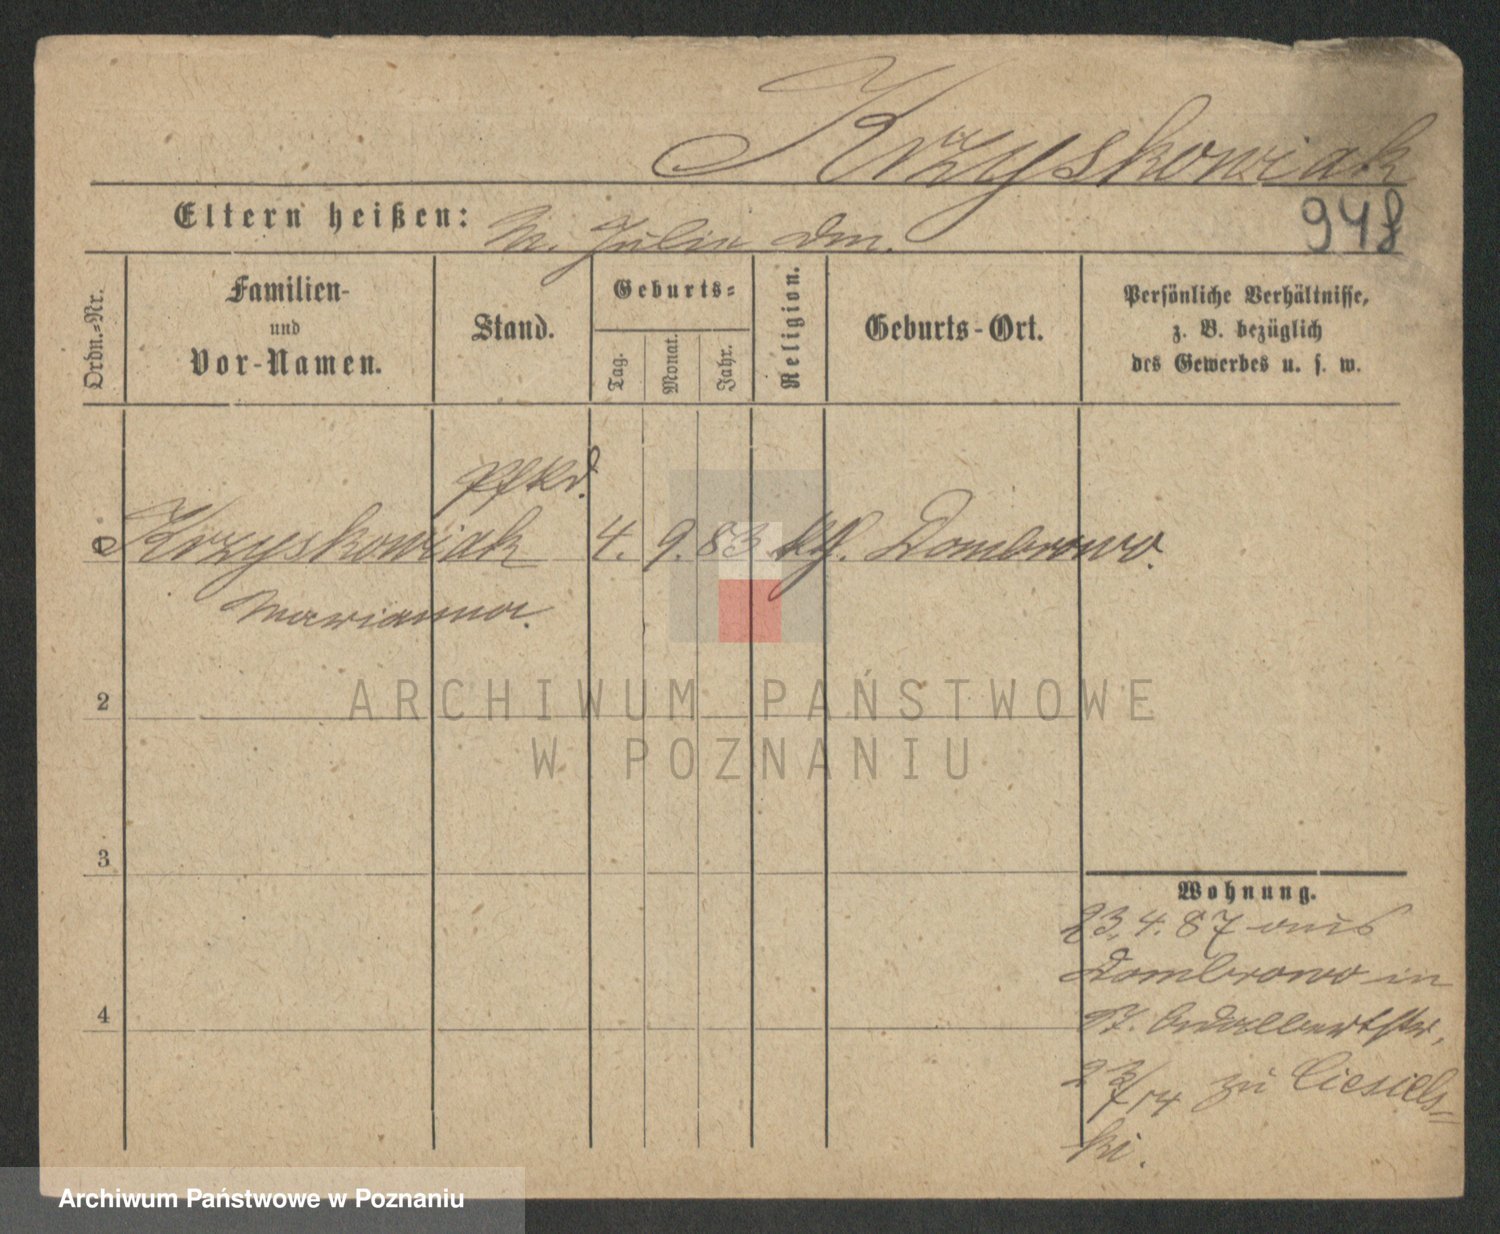 Krzyskowiak
Eltern heißen: M. Julia
948
Ordn.-Nr.
Familien-
und
Vor-Namen.
Stand.
Geburts-
Tag.
Monat.
Jahr.
Religion.
Geburts-Ort.
Persönliche Verhältnisse,
z. B. bezüglich
des Gewerbes u. s. w.
Krzyskowiak 4. 9. 83 Dombrowo.
Marianna.
2
3
4
Wohnung.
23. 4. 87 aus
Dombrowo in
Adalbertstr.
zu Ciesiels-
ki.
ARCHIWUM PAŃSTWOWE
W POZNANIU
Archiwum Państwowe w Poznaniu